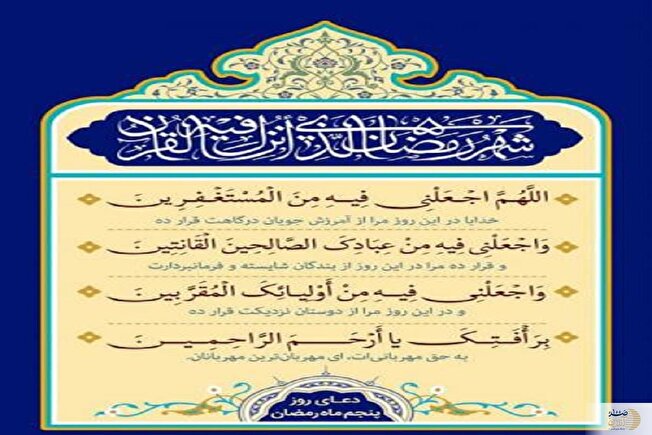 شهر رمضان الذي أنزل فيه القرآن
اللَّهُمَّ اجْعَلْنِي فِيهِ مِنَ الْمُسْتَغْفِرِينَ
خدایا در این روز مرا از آمرزش جویان درگاهت قرار ده
وَاجْعَلْنِي فِيهِ مِنْ عِبَادِكَ الصَّالِحِينَ الْقَانِتِينَ
و قرار ده مرا در این روز از بندگان شایسته و فرمانبردارت
وَاجْعَلْنِي فِيهِ مِنْ أَوْلِيَائِكَ الْمُقَرَّبِينَ
و در این روز مرا از دوستان نزدیکت قرار ده
بِرَأْفَتِكَ يَا أَرْحَمَ الرَّاحِمِينَ
به حق مهربانی‌ات، ای مهربان‌ترین مهربانان.
دعای روز
پنجم ماه رمضان